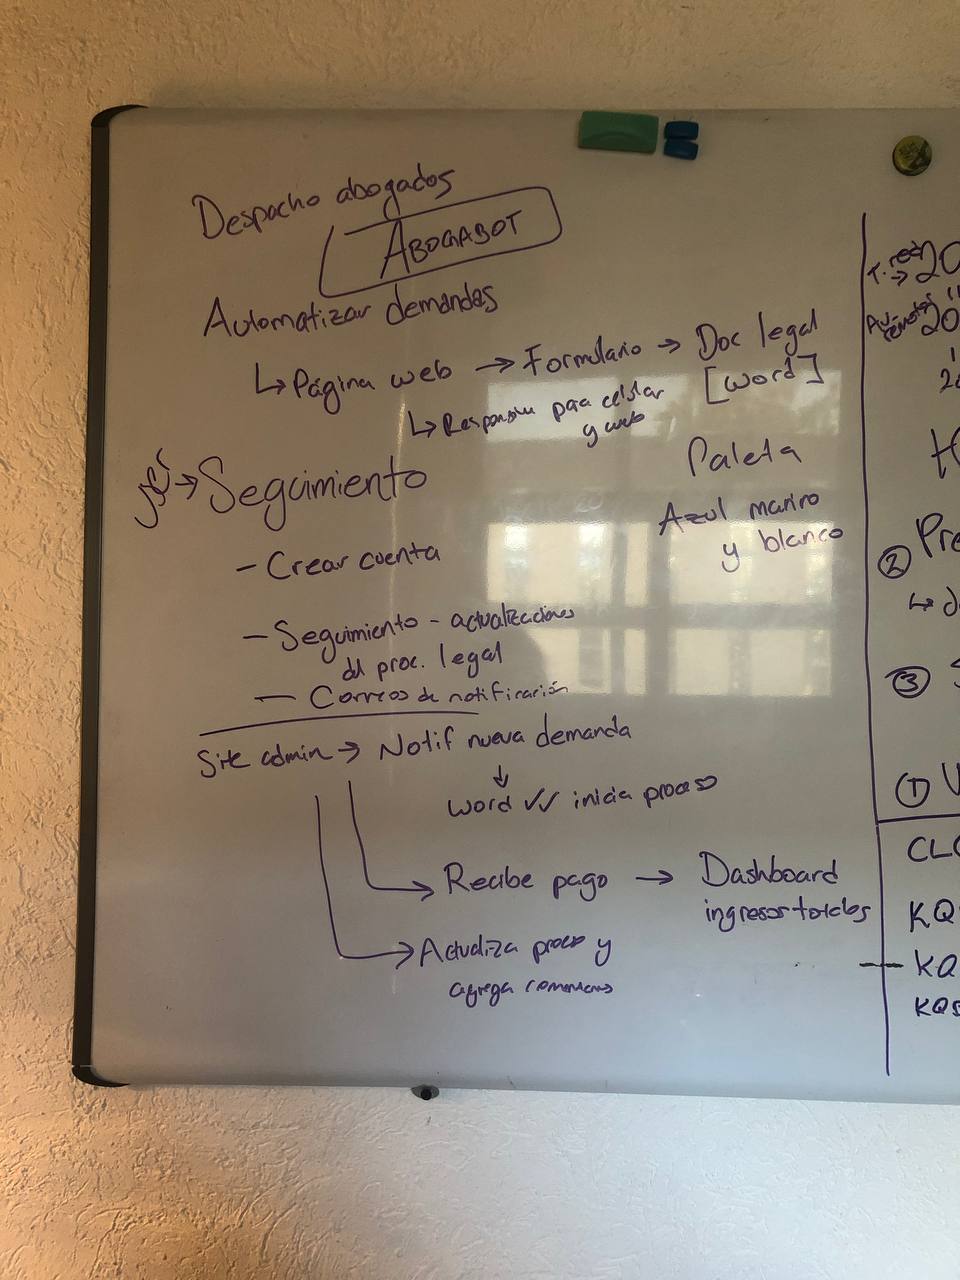 Despacho abogados
ABOGABOT
Automatizar demandas
↳ Página web → Formulario → Doc legal
[word]
↳ Responsiva para celular
y web
→ Seguimiento
Paleta
Azul marino
y blanco
- Crear cuenta
- Seguimiento - actualizaciones
del proc. legal
- Correos de notificación
Site admin → Notif nueva demanda
↓
word ✓✓ inicia proceso
→ Recibe pago → Dashboard
ingresos totales
→ Actualiza proceso y
agrega comentarios
20
20
② Pre
↳ d
③ S
① V
CLO
KQ
KQ
KQS